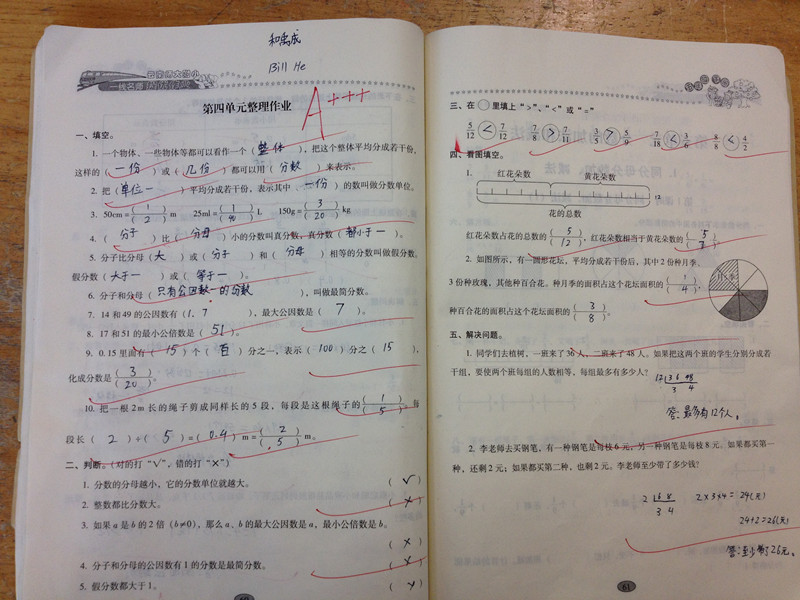 和禹成
Bill He
A+++
第四单元整理作业
一、填空。
1. 一个物体、一些物体等都可以看作一个(整体),把这个整体平均分成若干份,
这样的(一份)或(几份)都可以用(分数)来表示。
2. 把(单位一)平均分成若干份,表示其中(一份)的数叫做分数单位。
3. 50cm=(1)/(2)m 25ml=(1)/(40)L 150g=(3)/(20)kg
4. (分子)比(分母)小的分数叫真分数,真分数(都小于一)。
5. 分子比分母(大)或(分子)和(分母)相等的分数叫做假分数。
假分数(大于一)或(等于一)。
6. 分子和分母(只有公因数一的分数),叫做最简分数。
7. 14和49的公因数有(1、7),最大公因数是(7)。
8. 17和51的最小公倍数是(51)。
9. 0.15里面有(15)个(百)分之一,表示(100)分之(15),
化成分数是(3)/(20)。
10. 把一根2m长的绳子剪成同样长的5段,每段是这根绳子的(1)/(5),每
段长(2)÷(5)=(0.4)m=(2)/(5)m。
二、判断。(对的打“√”,错的打“×”)
1. 分数的分母越小,它的分数单位就越大。 (√)
2. 整数都比分数大。 (×)
3. 如果a是b的2倍(b≠0),那么a、b的最大公因数是a,最小公倍数是b。
(×)
4. 分子和分母的公因数有1的分数是最简分数。 (×)
5. 假分数都大于1。 (×)
三、在○里填上“>”、“<”或“=”
5/12 < 7/12 7/8 > 7/11 3/5 > 5/9 7/18 < 3/6 8/8 < 4/2
四、看图填空。
1. 红花朵数 黄花朵数
12
花的总数
红花朵数占花的总数的(5)/(12),红花朵数相当于黄花朵数的(5)/(7)。
2. 如图所示,有一圆形花坛,平均分成若干份后,其中2份种月季,
3份种玫瑰,其他种百合花。种月季的面积占这个花坛面积的(1)/(4),
月季
种百合花的面积占这个花坛面积的(3)/(8)。
五、解决问题。
1. 同学们去植树,一班来了36人,二班来了48人。如果把这两个班的学生分别分成若
干组,要使两个班每组的人数相等,每组最多有多少人?
12 36 48
3 4
答:最多有12个人。
2. 李老师去买钢笔,有一种钢笔是每枝6元,另一种钢笔是每枝8元。如果都买第一
种,还剩2元;如果都买第二种,也剩2元。李老师至少带了多少钱?
2 6 8 2×3×4=24(元)
3 4
24+2=26(元)
答:至少带了26元。
61